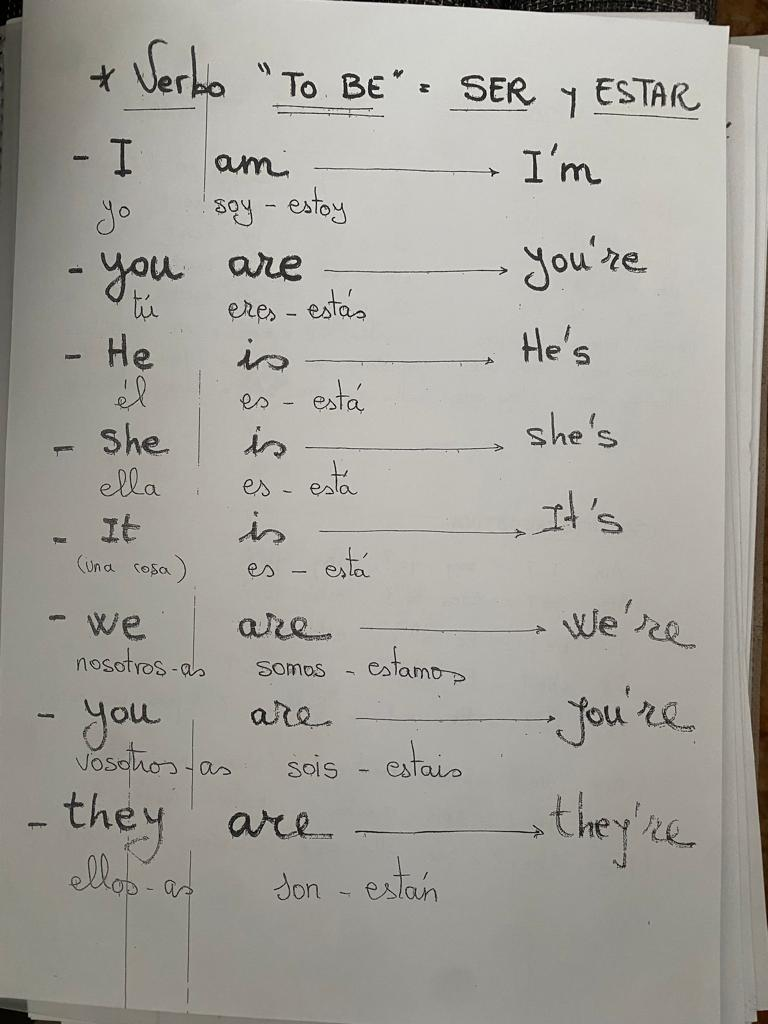 * Verbo "TO BE" = SER y ESTAR
- I am → I'm
yo soy - estoy
- you are → you're
tú eres - estás
- He is → He's
él es - está
- she is → she's
ella es - está
- It is → It's
(una cosa) es - está
- we are → we're
nosotros-as somos - estamos
- you are → you're
vosotros-as sois - estais
- they are → they're
ellos-as son - están